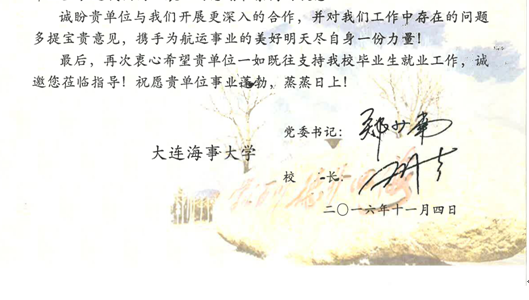 诚盼贵单位与我们开展更深入的合作，并对我们工作中存在的问题
多提宝贵意见，携手为航运事业的美好明天尽自身一份力量！
最后，再次衷心希望贵单位一如既往支持我校毕业生就业工作，诚
邀您莅临指导！祝愿贵单位事业蓬勃，蒸蒸日上！
党委书记：
大连海事大学
校 长：
二〇一六年十一月四日